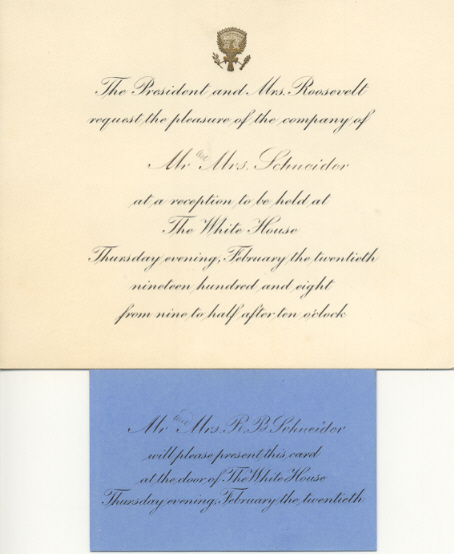 The President and Mrs. Roosevelt
request the pleasure of the company of
Mr and Mrs. Schneider
at a reception to be held at
The White House
Thursday evening, February the twentieth
nineteen hundred and eight
from nine to half after ten o'clock
Mr and Mrs. R. B. Schneider
will please present this card
at the door of The White House
Thursday evening, February the twentieth